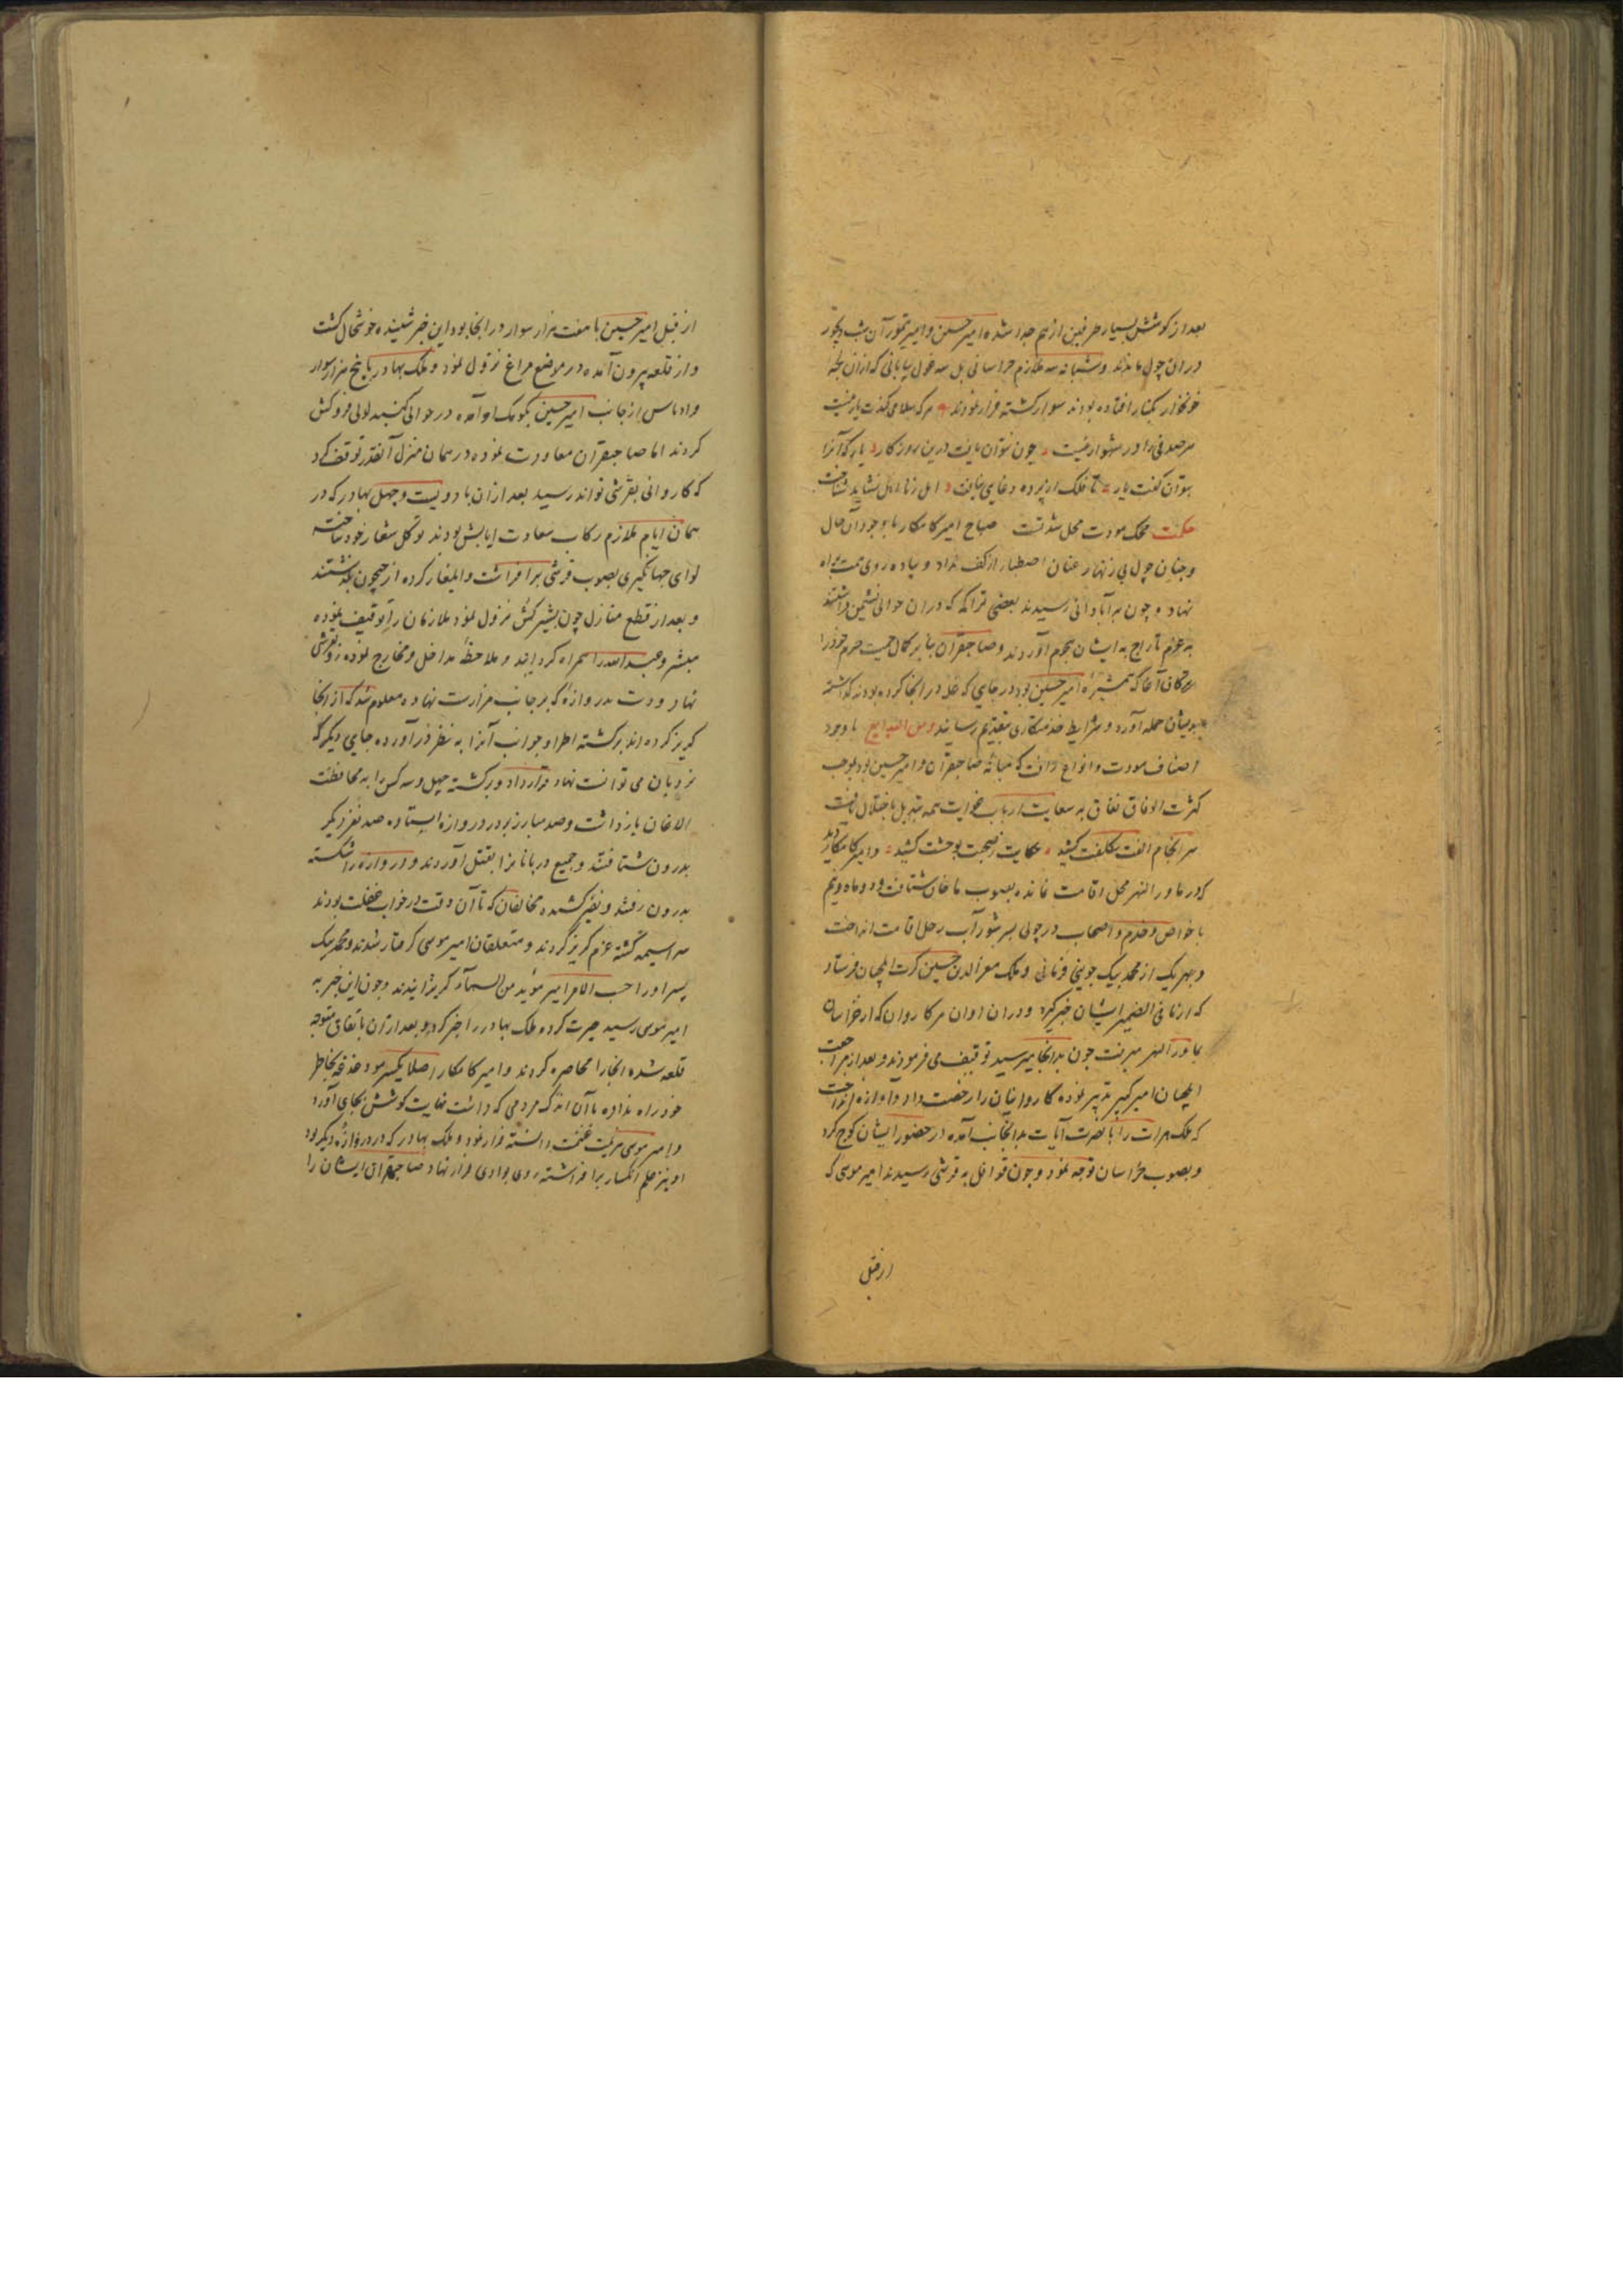 بعد از کوشش بسیار طرفین از هم جدا شده امیر حسین و امیر تیمور آن شب دیجور
در ان چول ماندند و شبانه سه ملازم خراسانی بل سه غول بیابانی که ازان لجه
خونخوار بکنار افتاده بودند سوار کشته فرار نمودند هر که سلامی کندت یار نیست
هر صدفی را در شهوار نیست چون نتوان یافت درین روزکار یار که آنرا
بتوان کفت یار تا فلک از پرده دغایی نیافت اهل زنا اهل نشاید شناخت
حکمت محک مودت محل شدتست صباح امیر کامکار با وجود آن حال
و چنان چول بی زنهار عنان اصطبار از کف نداد و پیاده روی همت براه
نهاده چون بر آبادانی رسیدند بعضی تراکمه که دران حوالی نشیمن داشتند
به عزم تاراج به ایشان هجوم آوردند و صاحبقران بنا بر کمال حمیت حرم خود را
ترکان آغا که همشیرهٔ امیر حسین بود در جایی که غله در انجا کرده بودند کذاشته
بدیشان حمله آورد و شرایط خدمتکاری بتقدیم رسانید و من البدایع با وجود
اصناف مودت و انواع رافت که میانهٔ صاحبقران و امیر حسین بود بموجب
کثرت الوفاق نفاق به سعایت ارباب غوایت همه تبدیل باختلال یافت
سر انجام الفت بکلفت کشید حکایت ز صحبت بوحشت کشید و امیر کامکار دید
که در ماورالنهر محل اقامت نمانده بصوب ماخان شتافت و دو ماه و نیم
با خواص و خدم و اصحاب در چولی بسر شور آب رحل اقامت انداخت
و بهر یک از محمد بیک جوینی قربانی و ملک معزالدین حسین کرت ایلچیان فرستاد
که از مافی الضمیر ایشان خبر کیرد و دران اوان هر کاروان که از خراسان
بماورالنهر میرفت چون بدانجا میرسید توقیف می فرمودند و بعد از مراجعت
ایلچیان امیر کبیر تدبیر نموده کاروانیان را رخصت داد و آوازه انداخت
که ملک هرات رایات نصرت آیات بدانجانب آمده در حضور ایشان کوچ کرد
و بصوب خراسان توجه نمود و چون قوافل به قرشی رسیدند امیر موسی که
از قبل
از قبل امیر حسین با هفت هزار سوار در انجا بود این خبر شنیده خوشحال کشت
و از قلعه بیرون آمده در موضع مراغ نزول نمود و ملک بهادر با پنج هزار سوار
از جانب امیر حسین بکومک او آمده در حوالی کنبد لولی فروکش
کردند اما صاحبقران معاودت نموده در همان منزل آنقدر توقف کرد
که کاروانی بقرشی تواند رسید بعد ازان با دویست و چهل بهادر که در
همان ایام ملازم رکاب سعادت ایابش بودند توکل شعار خود ساخته
لوای جهانکیری بصوب قرشی برافراشت و ایلغار کرده از جیحون بکذشتند
و بعد از قطع منازل چون بشیرکنت نزول نمود ملازمان را توقیف نموده
مبشر و عبدالله را همراه کردانید و ملاحظهٔ مداخل و مخارج نموده رو بقرشی
نهاد و دست بدروازهٔ که بر جانب مزارست نهاده معلوم شد که از انجا
کریز کرده اند برکشته اطراف و جوانب آنرا به نظر درآورده جایی دیکر که
نردبان می توانست نهاد قرار داد و برکشته چهل و سه کس را به محافظت
الاغان بازداشت و صد مبارز بر در دروازه ایستاده صد نفر دیکر
بدرون شتافتند و جمیع دربانانرا بقتل آوردند و دروازه را شکسته
بدرون رفتند و نفیر کشیده مخالفان که تا آن وقت در خواب غفلت بودند
سراسیمه کشته عزم کریز کردند و متعلقان امیر موسی کرفتار شدند و محمد بیک
پسر او را حسب الامر امیر مؤید من السماء کریزانیدند و چون این خبر به
امیر موسی رسید حیرت کرده ملک بهادر را خبر کرد و بعد ازان باتفاق متوجه
قلعه شده انجا را محاصره کردند و امیر کامکار اصلا یکسر مو دغدغه بخاطر
خود راه نداده با آن اندک مردمی که داشت نهایت کوشش بجای آورد
و امیر موسی هزیمت غنیمت دانسته فرار نمود و ملک بهادر که در دروازهٔ دیکر بود
او نیز علم انکسار برافراشته روی بوادی فرار نهاد صاحبقران ایشان را